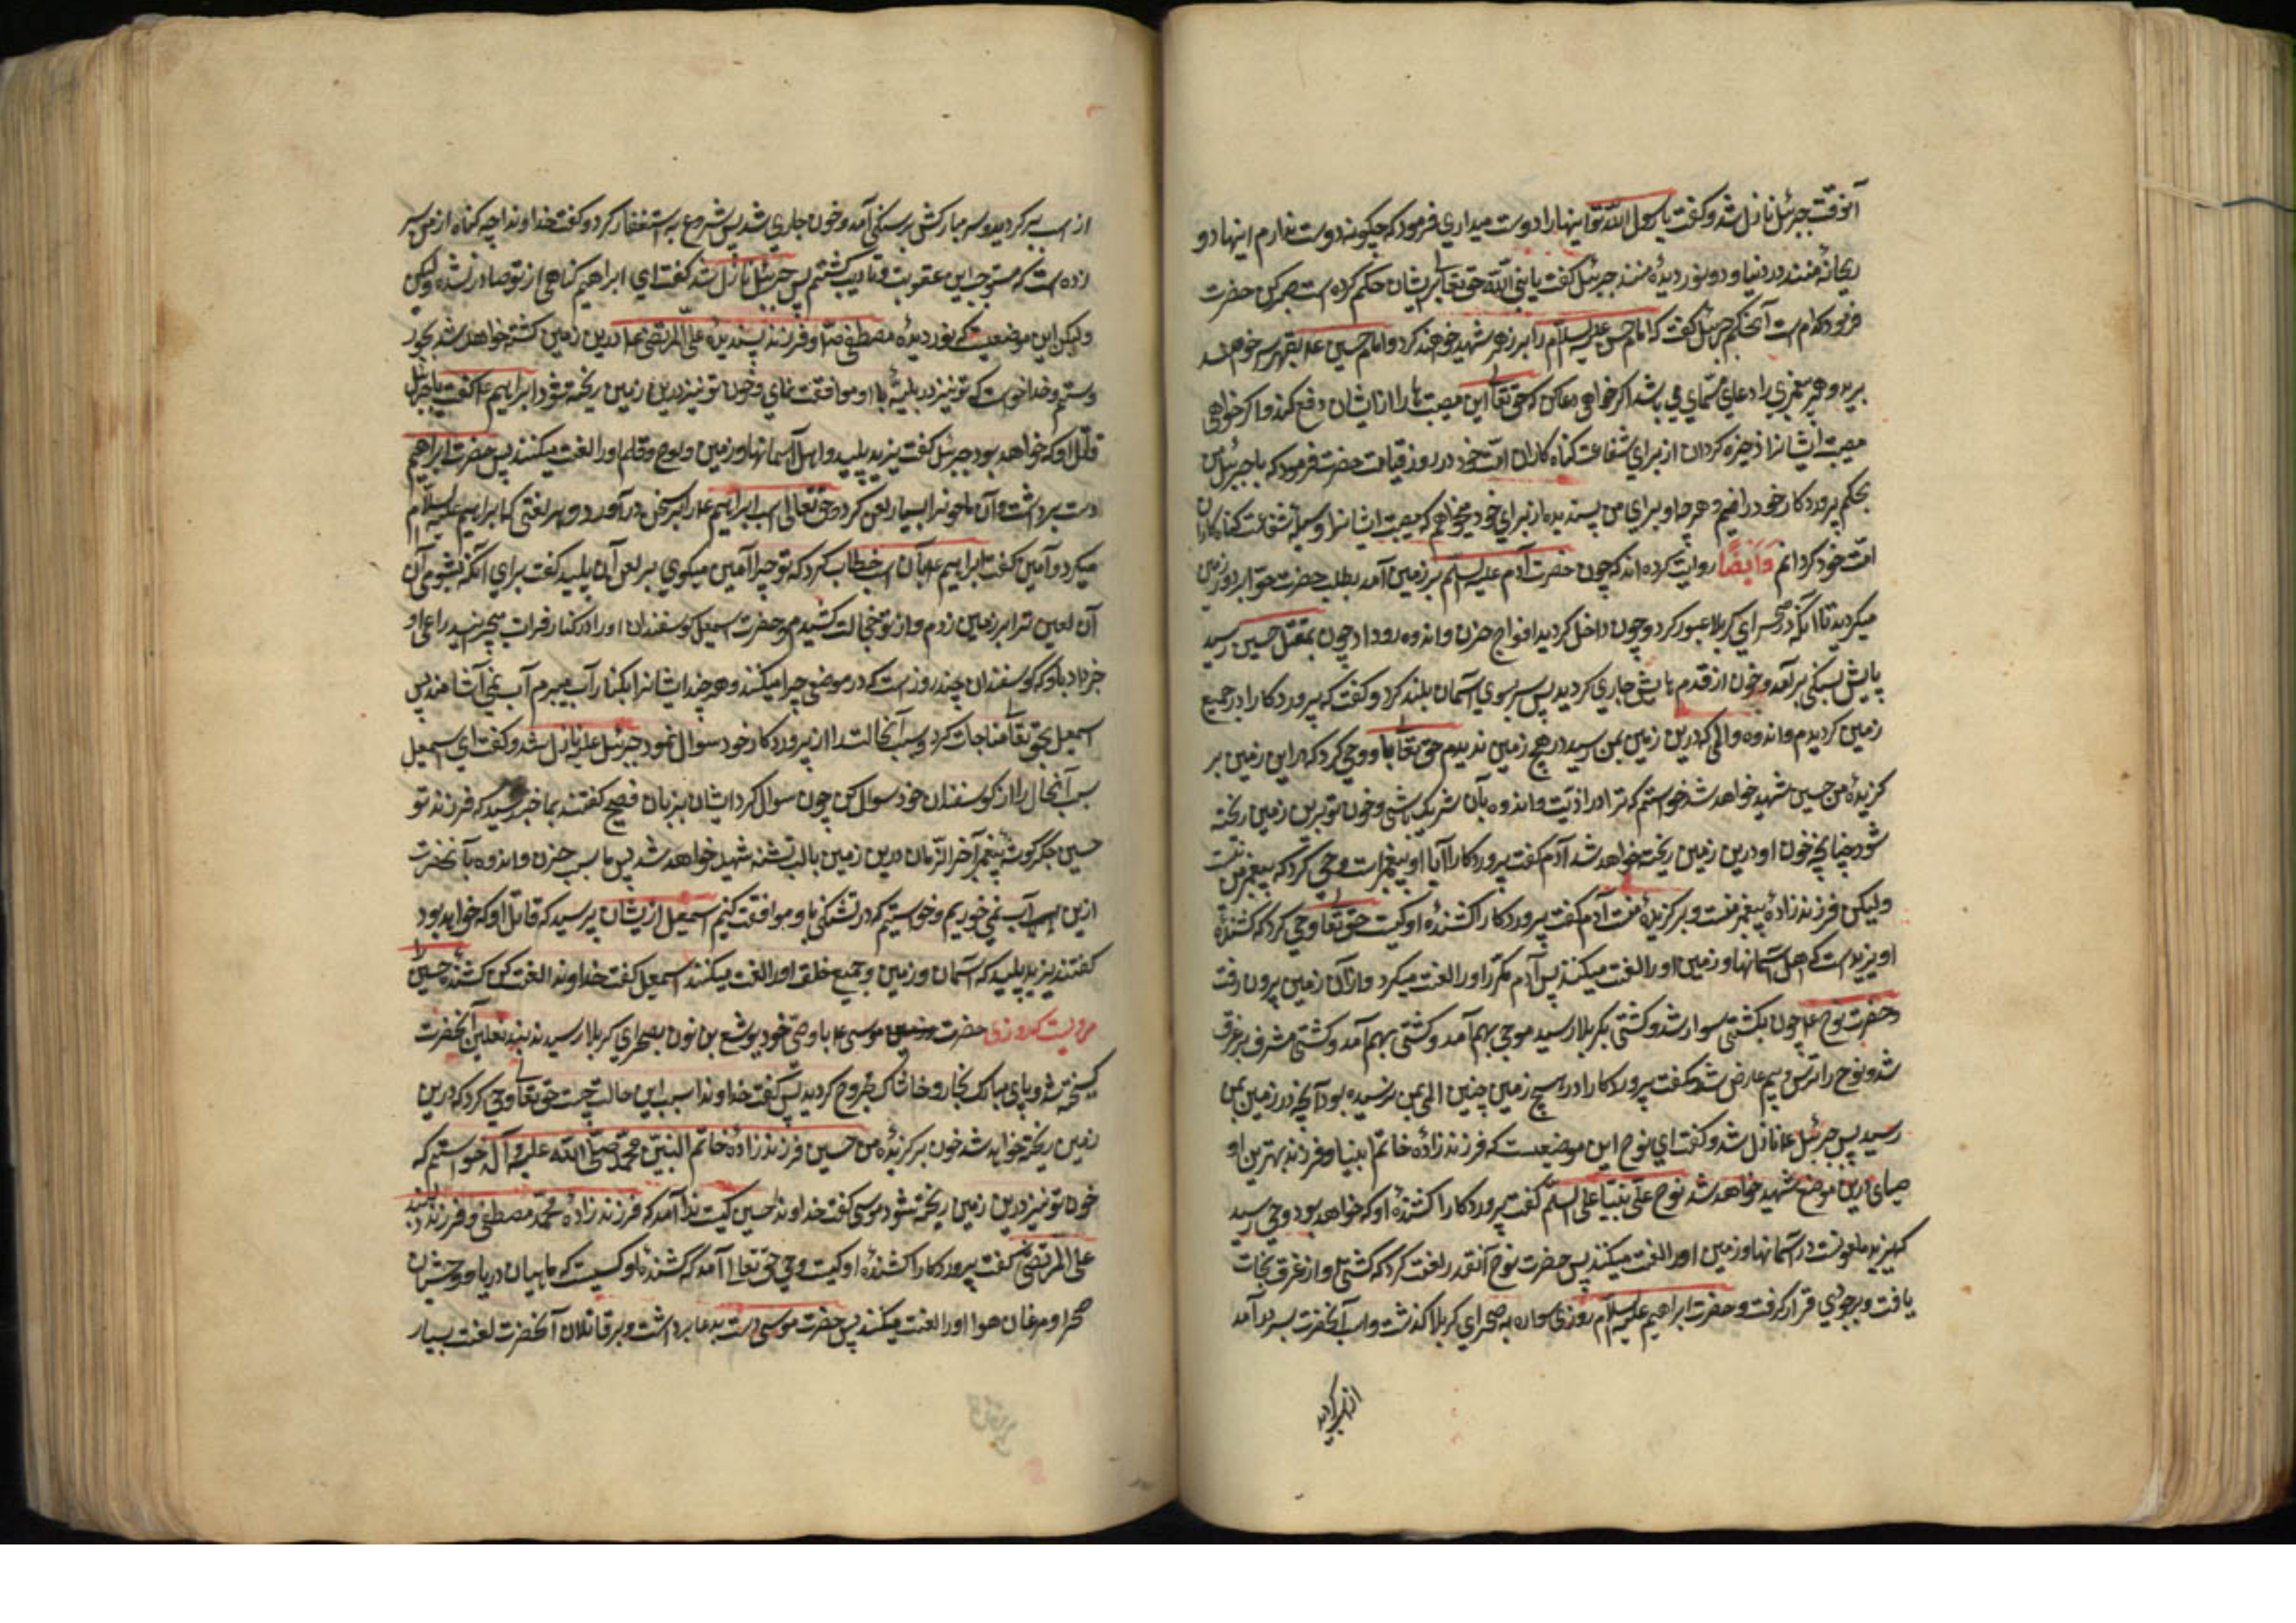 آنوقت جبرئیل نازل شد و کفت یا رسول الله تو اینها را دوست میداری فرمود که چکونه دوست ندارم اینها دو
ریحانهٔ منند در دنیا و دو نور دیدهٔ منند جبرئیل کفت یا نبی الله حق تعالی بر ایشان حکم کرده است صبر کن حضرت
فرمود کدام است آنحکم جبرئیل کفت که امام حسن علیه السلام را بزهر شهید خواهند کرد و امام حسین را سر خواهند
برید و هر پیغمبری را دعای مستجاب می باشد اکر خواهی دعا کن که حق تعالی این مصیبت را از ایشان دفع کند و اکر خواهی
مصیبت ایشانرا ذخیره کردان از برای شفاعت کناه کاران امت خود در روز قیامت حضرت فرمود که یا جبرئیل من
بحکم پروردکار خود راضیم و هر چه او برای من پسندیده از برای خود میخواهم که مصیبت ایشانرا وسیلهٔ شفاعت کناه کاران
امت خود کردانم وَاَیضًا روایت کرده اند که چون حضرت آدم علیه السلم بر زمین آمد بطلب حضرت حوا بر دور زمین
میکردید تا آنکه در صحرای کربلا عبور کرد و چون داخل کردید افواج حزن و اندوه رو داد چون بمقتل حسین رسید
پایش بسنکی بر آمد و خون از قدم پایش جاری کردید پس سر بسوی آسمان بلند کرد و کفت که پروردکارا در جمیع
زمین کردیدم و اندوه و المی که درین زمین بمن رسید در هیچ زمین ندیدم حق تعالی باو وحی کرد که در این زمین بر
کزیدهٔ من حسین شهید خواهد شد خواستم که ترا در اذیت و اندوه بآن شریک باشی و خون تو برین زمین ریخته
شود چنانچه خون او درین زمین ریخته خواهد شد آدم کفت پروردکارا آیا او پیغمبرست وحی کرد که پیغمبر من نیست
ولیکن فرزند زادهٔ پیغمبر منست و برکزیدهٔ منست آدم کفت پروردکارا کشندهٔ او کیست حق تعالی وحی کرد که کشندهٔ
او یزید است که اهل آسمانها و زمین او را لعنت میکنند پس آدم مکرر او را لعنت میکرد و از آن زمین بیرون رفت
و حضرت نوح ع چون بکشتی سوار شد و کشتی بکربلا رسید موجی بهم آمد و کشتی بهم آمد و کشتی مشرف بر غرق
شد و نوح را ترس و بیم عارض شد و کفت پروردکارا در هیچ زمین چنین المی بمن نرسیده بود آنچه در زمین بمن
رسید پس جبرئیل ع نازل شد و کفت ای نوح این موضعیست که فرزند زادهٔ خاتم انبیا و فرزند بهترین او
صیای درین موضع شهید خواهد شد نوح علی نبینا علی السلم کفت پروردکارا کشندهٔ او که خواهد بود وحی رسید
که یزید ملعونست در آسمانها و زمین او را لعنت میکنند پس حضرت نوح آنقدر لعنت کرد که کشتی او از غرق نجات
یافت و بر جودی قرار کرفت و حضرت ابراهیم علیه السلام روزی سواره بصحرای کربلا کذشت و اسب آنحضرت بسر در آمد
از اسب بر کردید و سر مبارکش بر سنکی آمد و خون جاری شد پس شروع به استغفار کرد و کفت خداوندا چه کناه از من سر
زده است که مستوجب این عقوبت و تادیب کشتم پس جبرئیل نازل شد کفت ای ابراهیم کناهی از تو صادر نشده ولیکن
ولیکن این موضعیست که نور دیدهٔ مصطفی ص و فرزند پسندیدهٔ علی المرتضی درین زمین کشته خواهد شد بجور
و ستم و خدا خواست که تو نیز در بلیهٔ با او موافقت نمای و خون تو نیز درین زمین ریخته شود ابراهیم ع کفت یا جبرئیل
قاتل او که خواهد بود جبرئیل کفت یزید پلید و اهل آسمانها و زمین و لوح و قلم او را لعنت میکنند پس حضرت ابراهیم
دست برداشت و آن ملعونرا بسیار لعن کرد و حق تعالی اسب ابراهیم ع را بسخن در آورد و بهر لعنتی که ابراهیم علیه السلام
میکرد او آمین کفت ابراهیم ع بآن اسب خطاب کرد که تو چرا آمین میکوی بر لعن آن پلید کفت برای آنکه بشومی آن
آن لعین ترا بر زمین زدم و از تو خجالت کشیدم و حضرت اسمعیل کوسفندان او را در کنار فرات میچرانید راعی او
خبر داد باو که کوسفندان چند روز است که در موضعی چرا میکنند و هر چند ایشانرا بکنار آب میبرم آب نمی آشامند پس
اسمعیل بحق تعالی مناجات کرد و سبب آنحالت را از پروردکار خود سوال نمود جبرئیل علیه نازل شد و کفت ای اسمعیل
سبب آنحال را از کوسفندان خود سوال کن چون سوال کرد ایشان بزبان فصیح کفتند بما خبر رسید که فرزند تو
حسین جکر کوشهٔ پیغمبر آخر الزمان درین زمین با لب تشنه شهید خواهد شد پس ما بسبب حزن و اندوه بآنحضرت
ازین آب نمی خوریم و خواستیم که در تشنکی باو موافقت کنیم اسمعیل از یشان پرسید که قاتل او که خواهد بود
کفتند یزید پلید که آسمان و زمین و جمیع خلق او را لعنت میکنند اسمعیل کفت خداوندا لعنت کن کشندهٔ حسین را
مرویست که روزی حضرت موسی ع با وصی خود یوشع بن نون بصحرای کربلا رسید بند نعلین آنحضرت
کسیخته شد و پای مبارک بخار و خاشاک مجروح کردید پس کفت خداوندا سبب این حالت چیست حق تعالی وحی کرد که درین
زمین ریخته خواهد شد خون برکزیدهٔ من حسین فرزند زادهٔ خاتم النبیّن محمّد صلّی الله علیه و آله خواستم که
خون تو نیز درین زمین ریخته شود موسی کفت خداوندا حسین کیست ندا آمد که فرزند زادهٔ محمّد مصطفی و فرزند
علی المرتضی کفت پروردکارا کشندهٔ او کیست وحی حق تعالی آمد که کشندهٔ او کسیست که ماهیان دریا و وحشیان
صحرا و مرغان هوا او را لعنت میکنند پس حضرت موسی دست بدعا برداشت و بر قاتلان آنحضرت لعنت بسیار